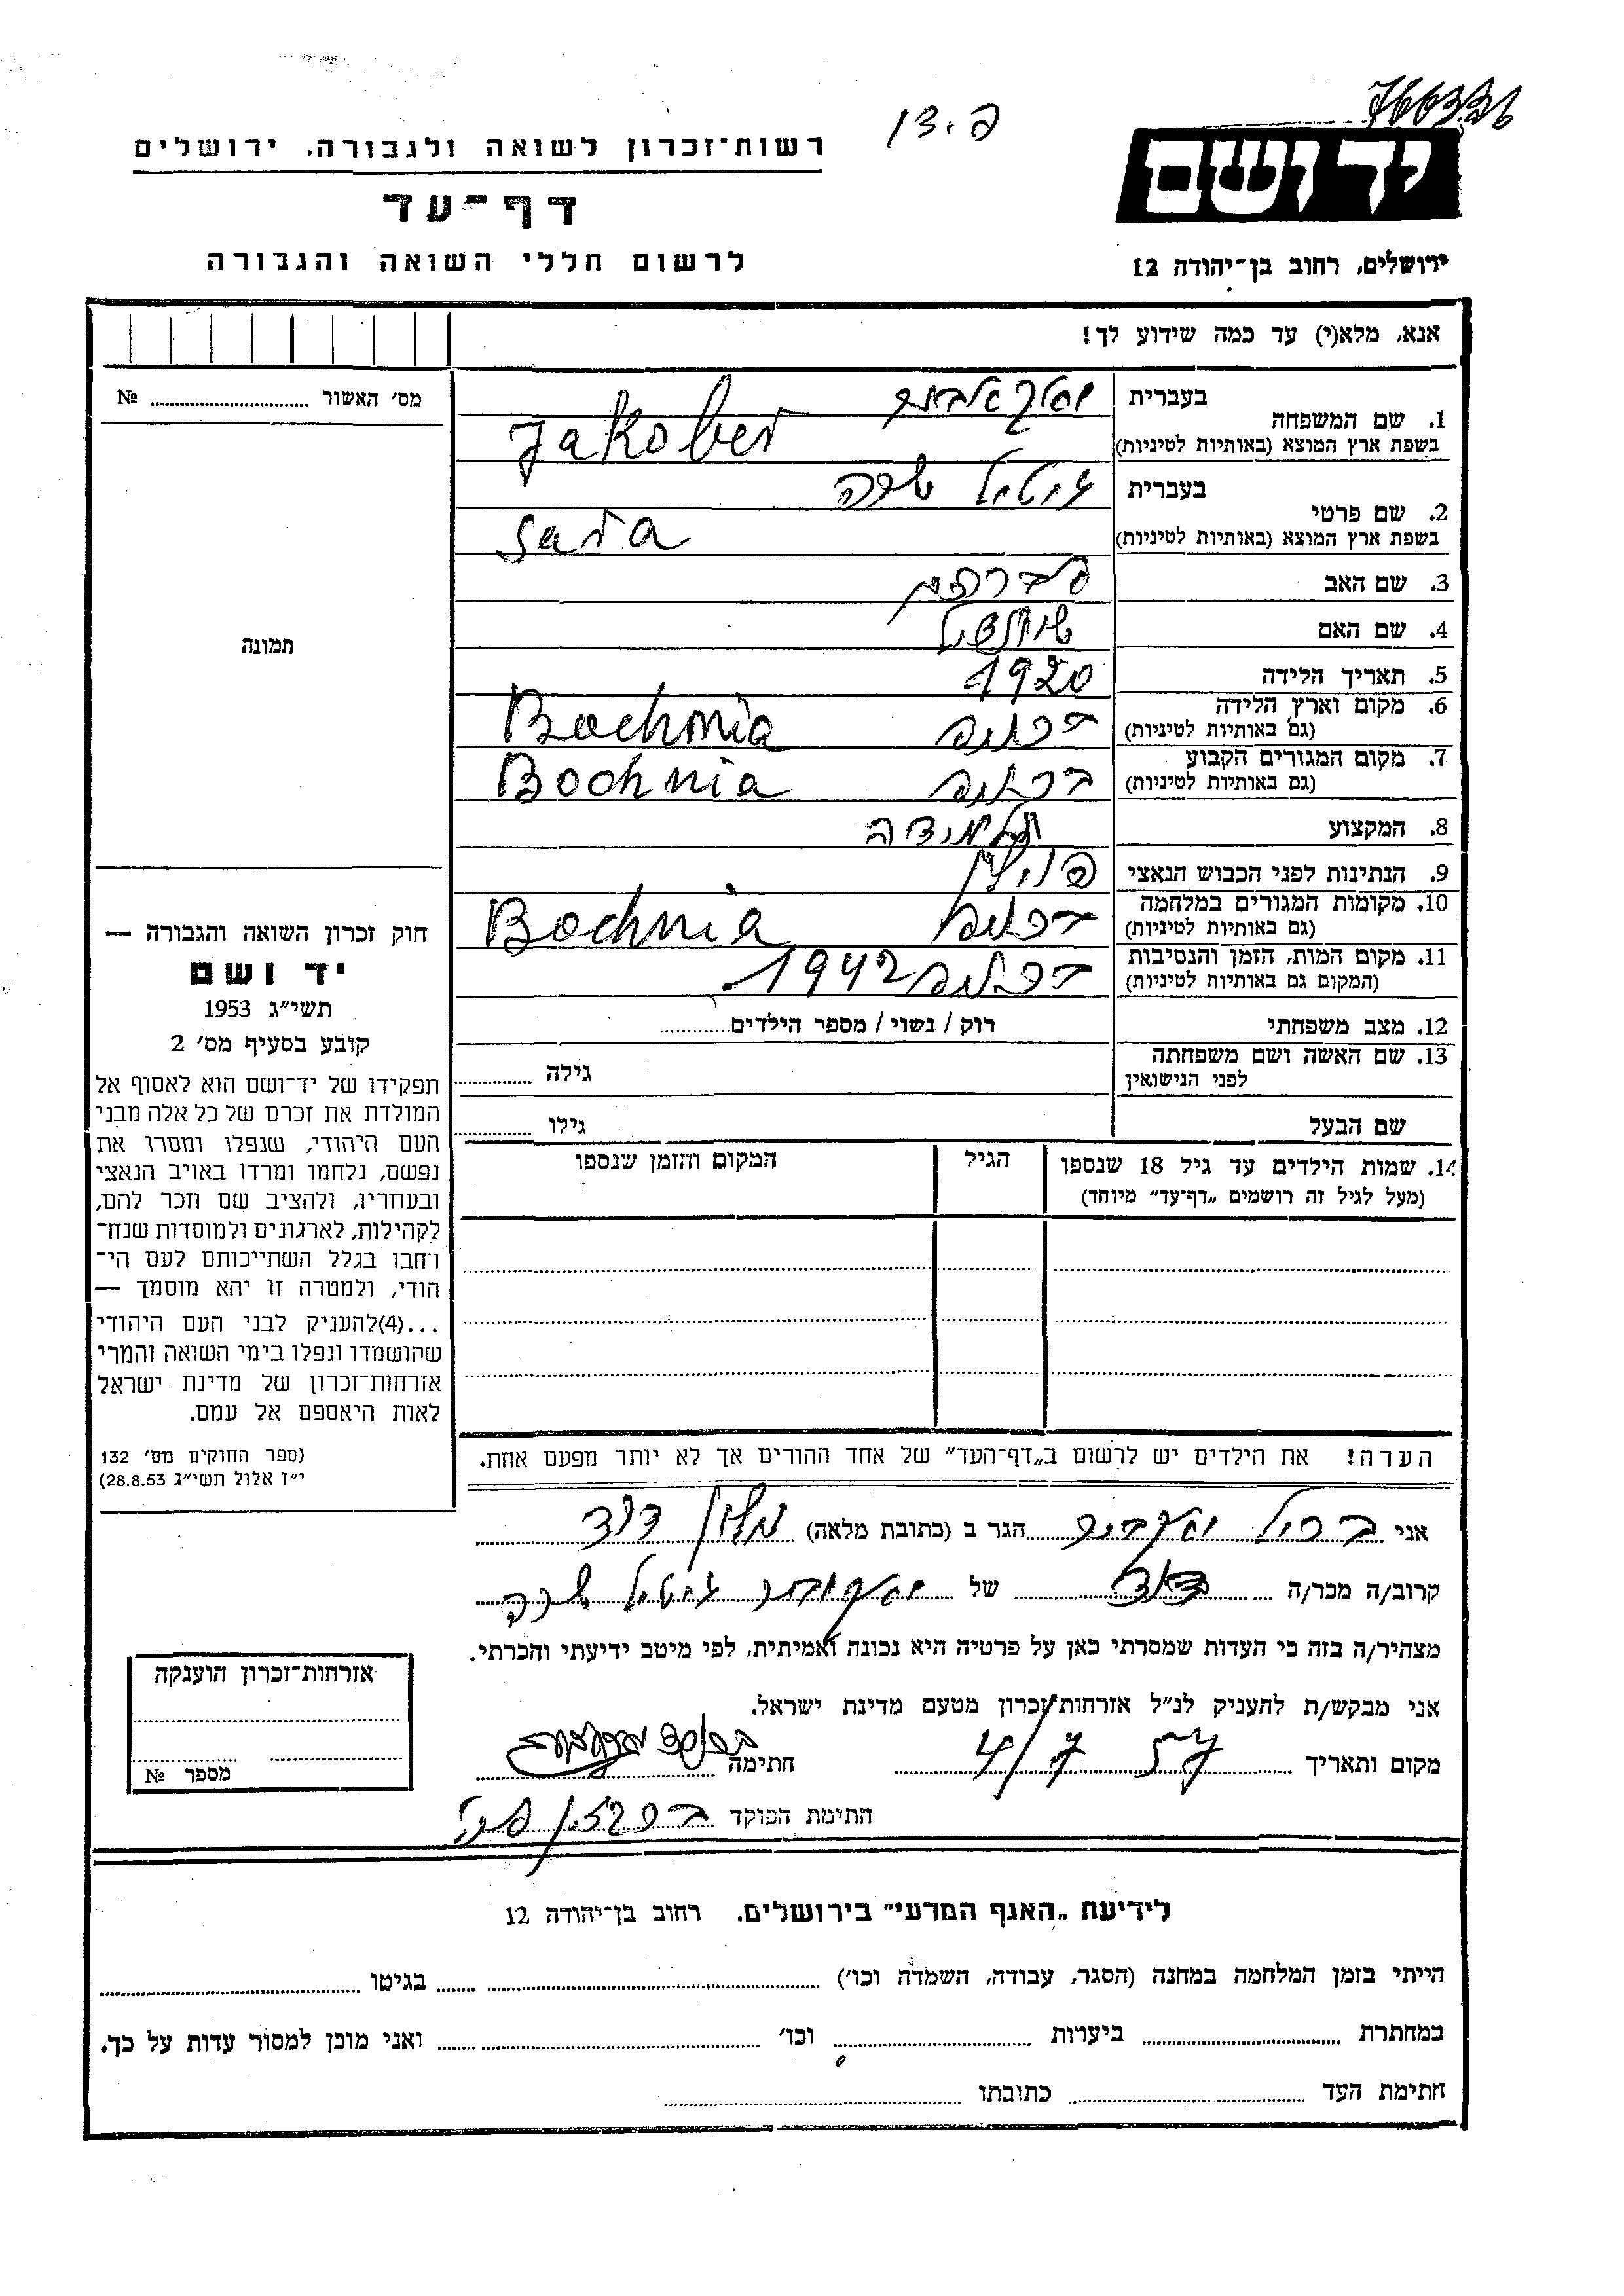 רשות־זכרון לשואה ולגבורה, ירושלים
דף־עד
לרשום חללי השואה והגבורה
יד ושם
ירושלים, רחוב בן־יהודה 12
אנא, מלא(י) עד כמה שידוע לך!
מס׳ האשור № 
1. שם המשפחה
בעברית
בשפת ארץ המוצא (באותיות לטיניות) Jakober
2. שם פרטי
בעברית גיטל שרה
בשפת ארץ המוצא (באותיות לטיניות) Sara
3. שם האב אברהם
4. שם האם
5. תאריך הלידה 1920
6. מקום וארץ הלידה
(גם באותיות לטיניות) Bochnia
7. מקום המגורים הקבוע
(גם באותיות לטיניות) Bochnia
8. המקצוע תלמידה
9. הנתינות לפני הכבוש הנאצי פולין
10. מקומות המגורים במלחמה
(גם באותיות לטיניות) Bochnia
11. מקום המות, הזמן והנסיבות
(המקום גם באותיות לטיניות) 1942
12. מצב משפחתי רוק / נשוי / מספר הילדים
13. שם האשה ושם משפחתה
לפני הנישואין גילה
שם הבעל גילו
14. שמות הילדים עד גיל 18 שנספו
(מעל לגיל זה רושמים „דף־עד״ מיוחד)
הגיל
המקום והזמן שנספו
תמונה
חוק זכרון השואה והגבורה —
יד ושם
תשי״ג 1953
קובע בסעיף מס׳ 2
תפקידו של יד־ושם הוא לאסוף אל
המולדת את זכרם של כל אלה מבני
העם היהודי, שנפלו ומסרו את
נפשם, נלחמו ומרדו באויב הנאצי
ובעוזריו, ולהציב שם וזכר להם,
לקהילות, לארגונים ולמוסדות שנח־
רחבו בגלל השתייכותם לעם הי־
הודי, ולמטרה זו יהא מוסמך —
...(4)להעניק לבני העם היהודי
שהושמדו ונפלו בימי השואה והמרי
אזרחות־זכרון של מדינת ישראל
לאות היאספם אל עמם.
(ספר החוקים מס׳ 132
י״ז אלול תשי״ג 28.8.53)
הערה! את הילדים יש לרשום ב„דף־העד״ של אחד ההורים אך לא יותר מפעם אחת.
אני הגר ב (כתובת מלאה)
קרוב/ה מכר/ה דוד של גיטל שרה
מצהיר/ה בזה כי העדות שמסרתי כאן על פרטיה היא נכונה ואמיתית, לפי מיטב ידיעתי והכרתי.
אני מבקש/ת להעניק לנ״ל אזרחות־זכרון מטעם מדינת ישראל.
מקום ותאריך 4/7 57 חתימה
חתימת הפוקד
אזרחות־זכרון הוענקה
מספר №
לידיעת „האגף המדעי״ בירושלים, רחוב בן־יהודה 12
הייתי בזמן המלחמה במחנה (הסגר, עבודה, השמדה וכו׳) בגיטו
במחתרת ביערות וכו׳ ואני מוכן למסור עדות על כך.
חתימת העד כתובתו